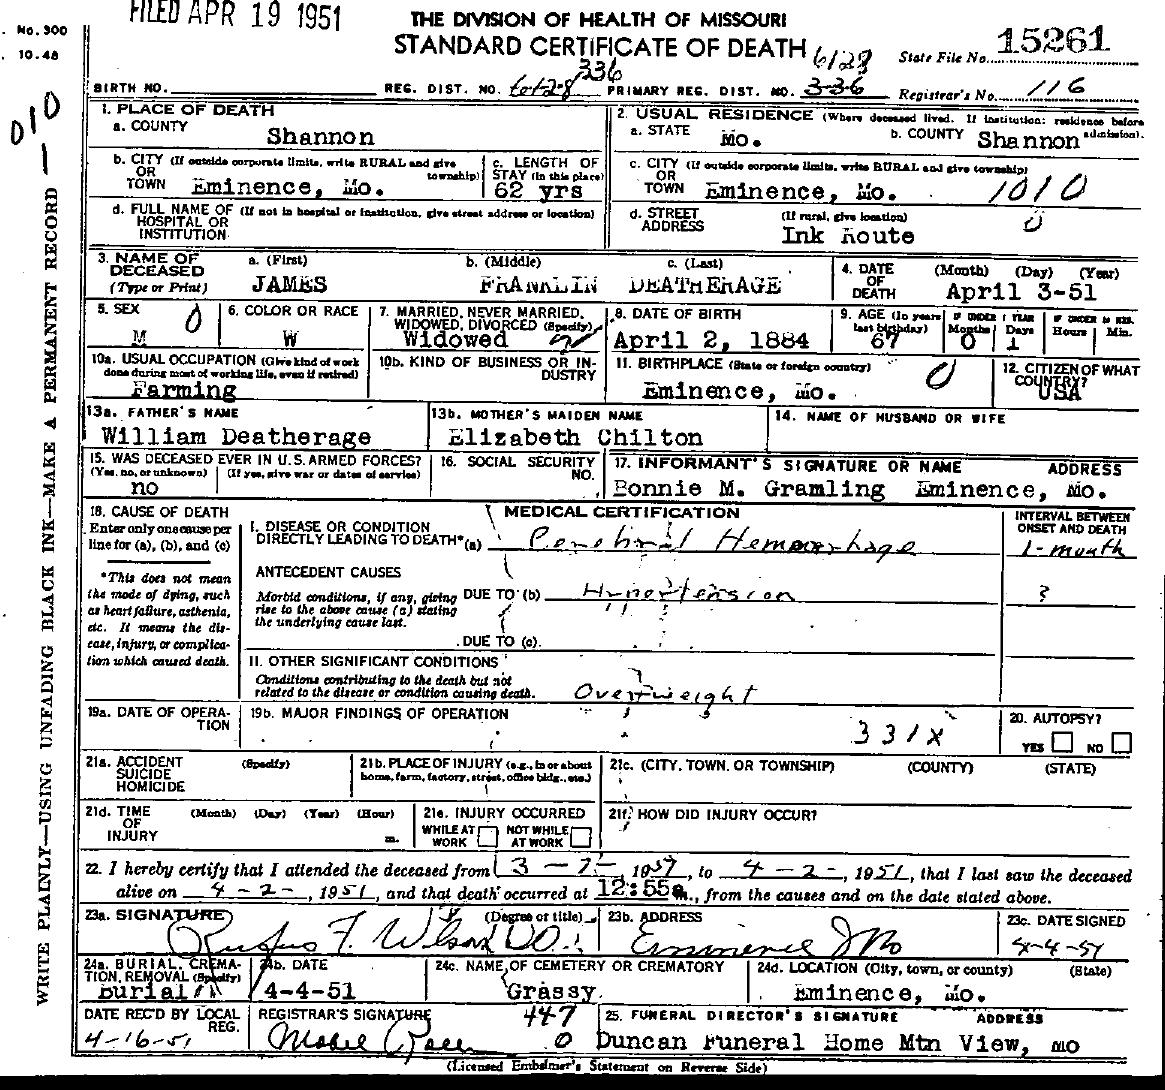 FILED APR 19 1951
THE DIVISION OF HEALTH OF MISSOURI
STANDARD CERTIFICATE OF DEATH
No. 300
10.48
6128
State File No. 15261
BIRTH NO.
REG. DIST. NO. 336
PRIMARY REG. DIST. NO. 336
Registrar's No. 116
010
WRITE PLAINLY—USING UNFADING BLACK INK—MAKE A PERMANENT RECORD
1. PLACE OF DEATH
a. COUNTY Shannon
2. USUAL RESIDENCE (Where deceased lived. If institution: residence before admission).
a. STATE Mo. b. COUNTY Shannon
b. CITY (If outside corporate limits, write RURAL and give township) OR TOWN Eminence, Mo.
c. LENGTH OF STAY (in this place) 62 yrs
c. CITY (If outside corporate limits, write RURAL and give township) OR TOWN Eminence, Mo. 1010
d. FULL NAME OF (If not in hospital or institution, give street address or location) HOSPITAL OR INSTITUTION
d. STREET ADDRESS (If rural, give location) Ink Route 0
3. NAME OF DECEASED (Type or Print)
a. (First) JAMES
b. (Middle) FRANKLIN
c. (Last) DEATHERAGE
4. DATE OF DEATH (Month) (Day) (Year) April 3-51
5. SEX M 0
6. COLOR OR RACE W
7. MARRIED, NEVER MARRIED, WIDOWED, DIVORCED (Specify) Widowed
8. DATE OF BIRTH April 2, 1884
9. AGE (In years last birthday) 67
IF UNDER 1 YEAR Months 0 Days 1
IF UNDER 24 HRS. Hours Min.
10a. USUAL OCCUPATION (Give kind of work done during most of working life, even if retired) Farming
10b. KIND OF BUSINESS OR INDUSTRY
11. BIRTHPLACE (State or foreign country) Eminence, Mo. 0
12. CITIZEN OF WHAT COUNTRY? USA
13a. FATHER'S NAME William Deatherage
13b. MOTHER'S MAIDEN NAME Elizabeth Chilton
14. NAME OF HUSBAND OR WIFE
15. WAS DECEASED EVER IN U.S. ARMED FORCES? (Yes, no, or unknown) (If yes, give war or dates of service) no
16. SOCIAL SECURITY NO.
17. INFORMANT'S SIGNATURE OR NAME ADDRESS
Bonnie M. Gramling Eminence, Mo.
18. CAUSE OF DEATH
Enter only one cause per line for (a), (b), and (c)
*This does not mean the mode of dying, such as heart failure, asthenia, etc. It means the disease, injury, or complication which caused death.
MEDICAL CERTIFICATION
INTERVAL BETWEEN ONSET AND DEATH
I. DISEASE OR CONDITION DIRECTLY LEADING TO DEATH* (a) Cerebral Hemorrhage 1-month
ANTECEDENT CAUSES
Morbid conditions, if any, giving rise to the above cause (a) stating the underlying cause last.
DUE TO (b) Hypertension ?
DUE TO (c)
II. OTHER SIGNIFICANT CONDITIONS
Conditions contributing to the death but not related to the disease or condition causing death. Overweight
19a. DATE OF OPERATION
19b. MAJOR FINDINGS OF OPERATION
331X
20. AUTOPSY?
YES NO
21a. ACCIDENT SUICIDE HOMICIDE (Specify)
21b. PLACE OF INJURY (e.g., in or about home, farm, factory, street, office bldg., etc.)
21c. (CITY, TOWN, OR TOWNSHIP) (COUNTY) (STATE)
21d. TIME OF INJURY (Month) (Day) (Year) (Hour) m.
21e. INJURY OCCURRED WHILE AT WORK NOT WHILE AT WORK
21f. HOW DID INJURY OCCUR?
22. I hereby certify that I attended the deceased from 3-7-, 1951, to 4-2-, 1951, that I last saw the deceased
alive on 4-2-, 1951, and that death occurred at 12:55a m., from the causes and on the date stated above.
23a. SIGNATURE (Degree or title) Rufus F. Wilson DO.
23b. ADDRESS Eminence Mo
23c. DATE SIGNED 4-4-51
24a. BURIAL, CREMATION, REMOVAL (Specify) Burial
24b. DATE 4-4-51
24c. NAME OF CEMETERY OR CREMATORY Grassy
24d. LOCATION (City, town, or county) (State) Eminence, Mo.
DATE REC'D BY LOCAL REG. 4-16-51
REGISTRAR'S SIGNATURE Mabel 447 0
25. FUNERAL DIRECTOR'S SIGNATURE ADDRESS
Duncan Funeral Home Mtn View, MO
(Licensed Embalmer's Statement on Reverse Side)